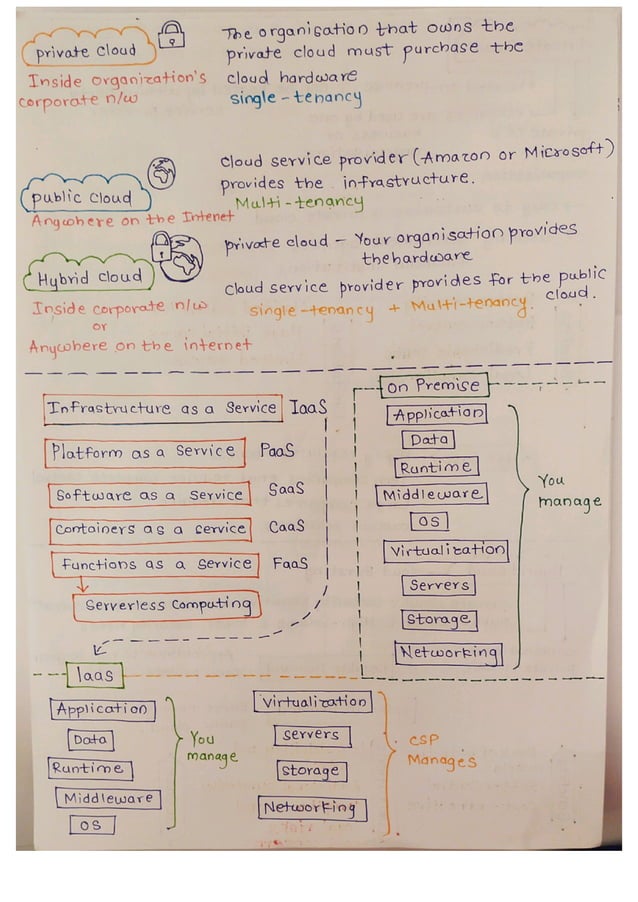 private cloud
Inside Organization's
corporate n/w
The organisation that owns the
private cloud must purchase the
cloud hardware
single-tenancy
public cloud
Anywhere on the Intenet
cloud service provider (Amazon or Microsoft)
provides the infrastructure.
Multi-tenancy
Hybrid cloud
Inside corporate n/w
or
Anywhere on the internet
private cloud - Your organisation provides
thehardware
cloud service provider provides for the public
cloud.
single-tenancy + Multi-tenancy.
Infrastructure as a Service IaaS
Platform as a Service PaaS
Software as a Service SaaS
Containers as a service CaaS
Functions as a Service FaaS
Serverless Computing
On Premise
Application
Data
Runtime
Middleware
OS
Virtualization
Servers
Storage
Networking
You
manage
Iaas
Application
Data
Runtime
Middleware
OS
You
manage
Virtualization
servers
storage
Networking
CSP
Manages